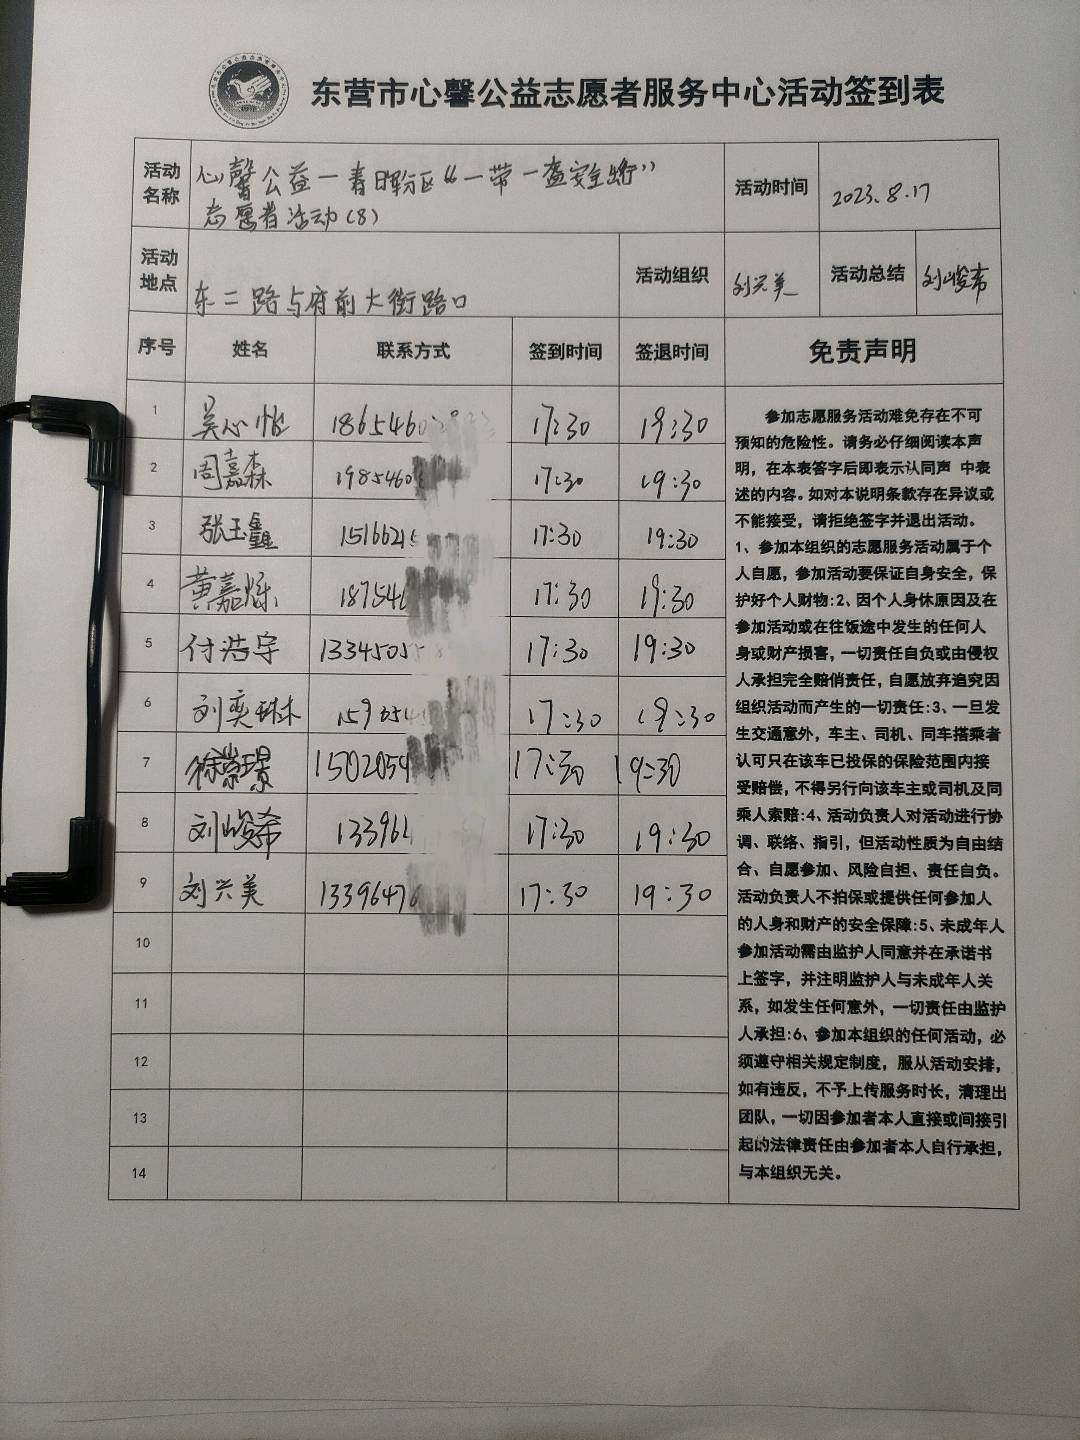 东营市心馨公益志愿者服务中心活动签到表
活动名称 心馨公益一青日黔区“一带一盔安全出行”
志愿者活动(8)
活动时间 2023.8.17
活动地点 东二路与府前大街路口
活动组织 刘兴美 活动总结 刘峻希
序号 姓名 联系方式 签到时间 签退时间 免责声明
1 吴心怡 1865460 17:30 19:30
2 周嘉森 1985460 17:30 19:30
3 张玉鑫 1516621 17:30 19:30
4 黄嘉烁 187546 17:30 19:30
5 付浩宇 13345055 17:30 19:30
6 刘奕琳 159 54 17:30 19:30
7 徐崇璟 1502054 17:30 19:30
8 刘峻希 13396 17:30 19:30
9 刘兴美 13396476 17:30 19:30
10
11
12
13
14
参加志愿服务活动难免存在不可
预知的危险性。请务必仔细阅读本声
明，在本表答字后即表示认同声 中表
述的内容。如对本说明条款存在异议或
不能接受，请拒绝签字并退出活动。
1、参加本组织的志愿服务活动属于个
人自愿，参加活动要保证自身安全，保
护好个人财物:2、因个人身休原因及在
参加活动或在往饭途中发生的任何人
身或财产损害，一切责任自负或由侵权
人承担完全赔俏责任，自愿放弃追究因
组织活动而产生的一切责任:3、一旦发
生交通意外，车主、司机、同车搭乘者
认可只在该车已投保的保险范围内接
受赔偿，不得另行向该车主或司机及同
乘人索赔:4、活动负责人对活动进行协
调、联络、指引，但活动性质为自由结
合、自愿参加、风险自担、责任自负。
活动负责人不拍保或提供任何参加人
的人身和财产的安全保障:5、未成年人
参加活动需由监护人同意并在承诺书
上签字，并注明监护人与未成年人关
系，如发生任何意外，一切责任由监护
人承担:6、参加本组织的任何活动，必
须遵守相关规定制度，服从活动安排，
如有违反，不予上传服务时长，清理出
团队，一切因参加者本人直接或间接引
起的法律责任由参加者本人自行承担，
与本组织无关。